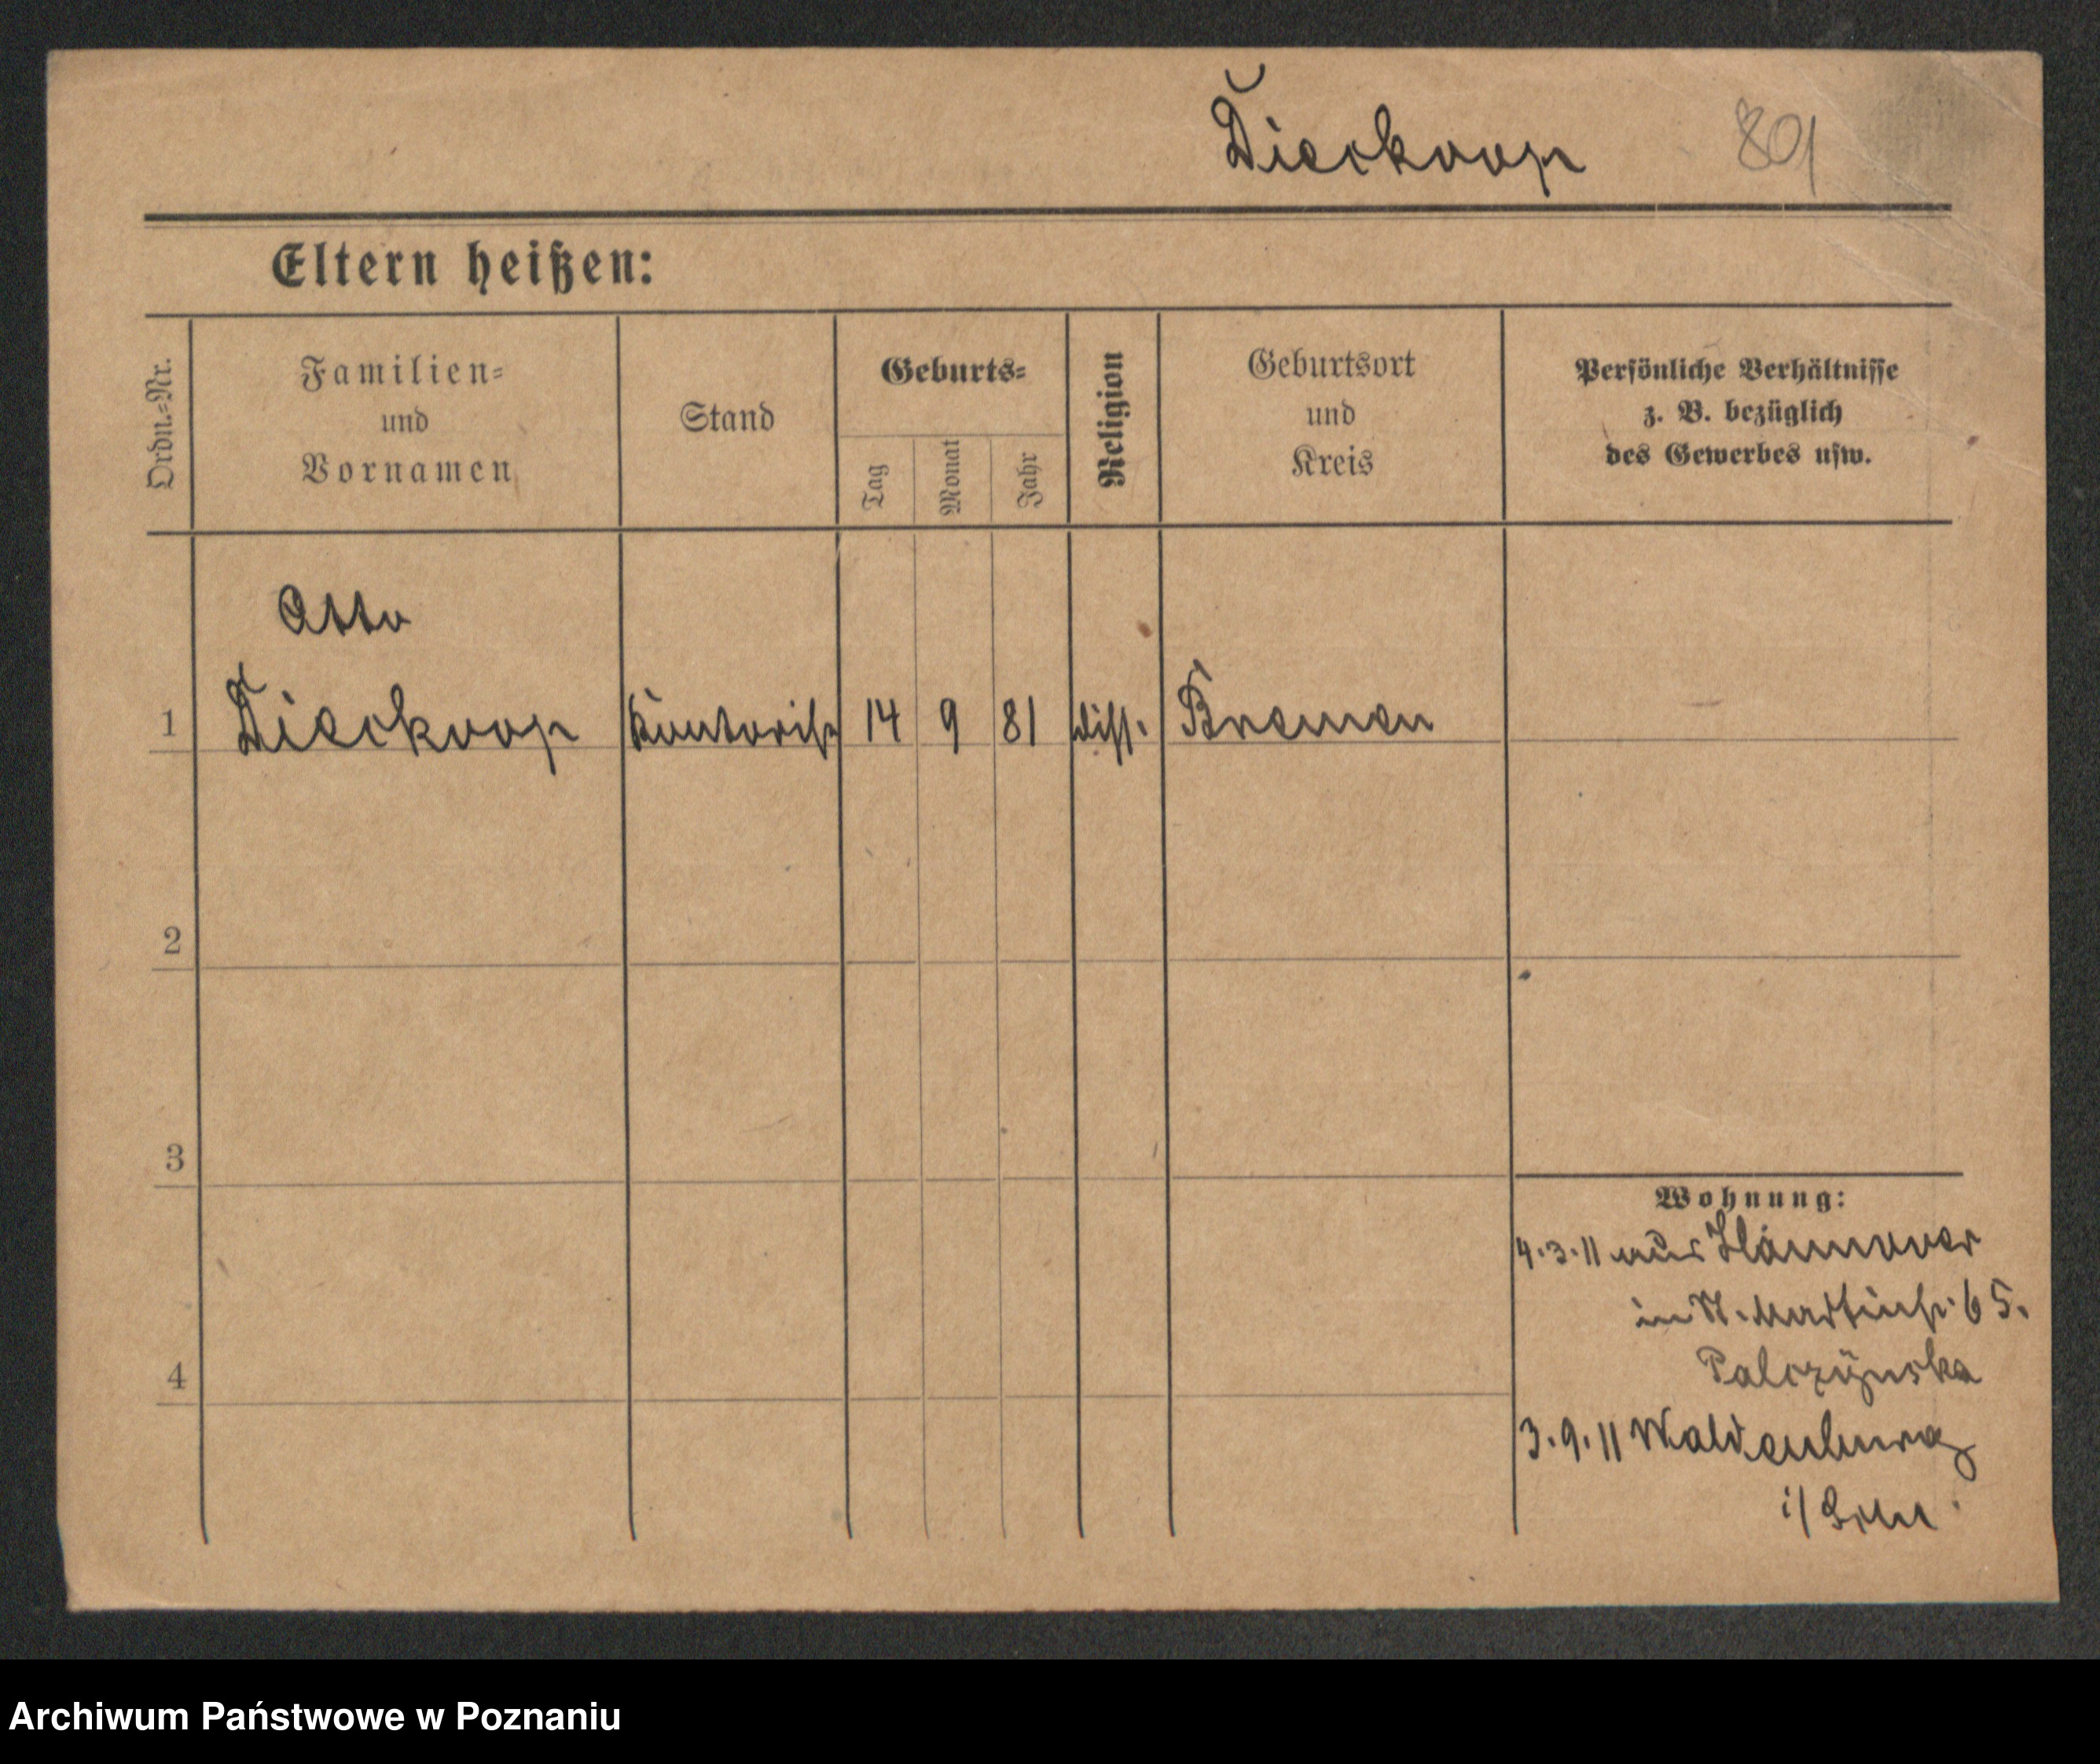 Dieckoop 801
Eltern heißen:
Ordn.=Nr.
Familien=
und
Vornamen
Stand
Geburts=
Tag
Monat
Jahr
Religion
Geburtsort
und
Kreis
Persönliche Verhältnisse
z. B. bezüglich
des Gewerbes usw.
Otto
1 Dieckoop Kontorist 14 9 81 diss. Bremen
2
3
4
Wohnung:
4.3.11 aus Hannover
in St. Martinstr. 65.
Palczynska
3.9.11 Waldenburg
i/ Schl.
Archiwum Państwowe w Poznaniu